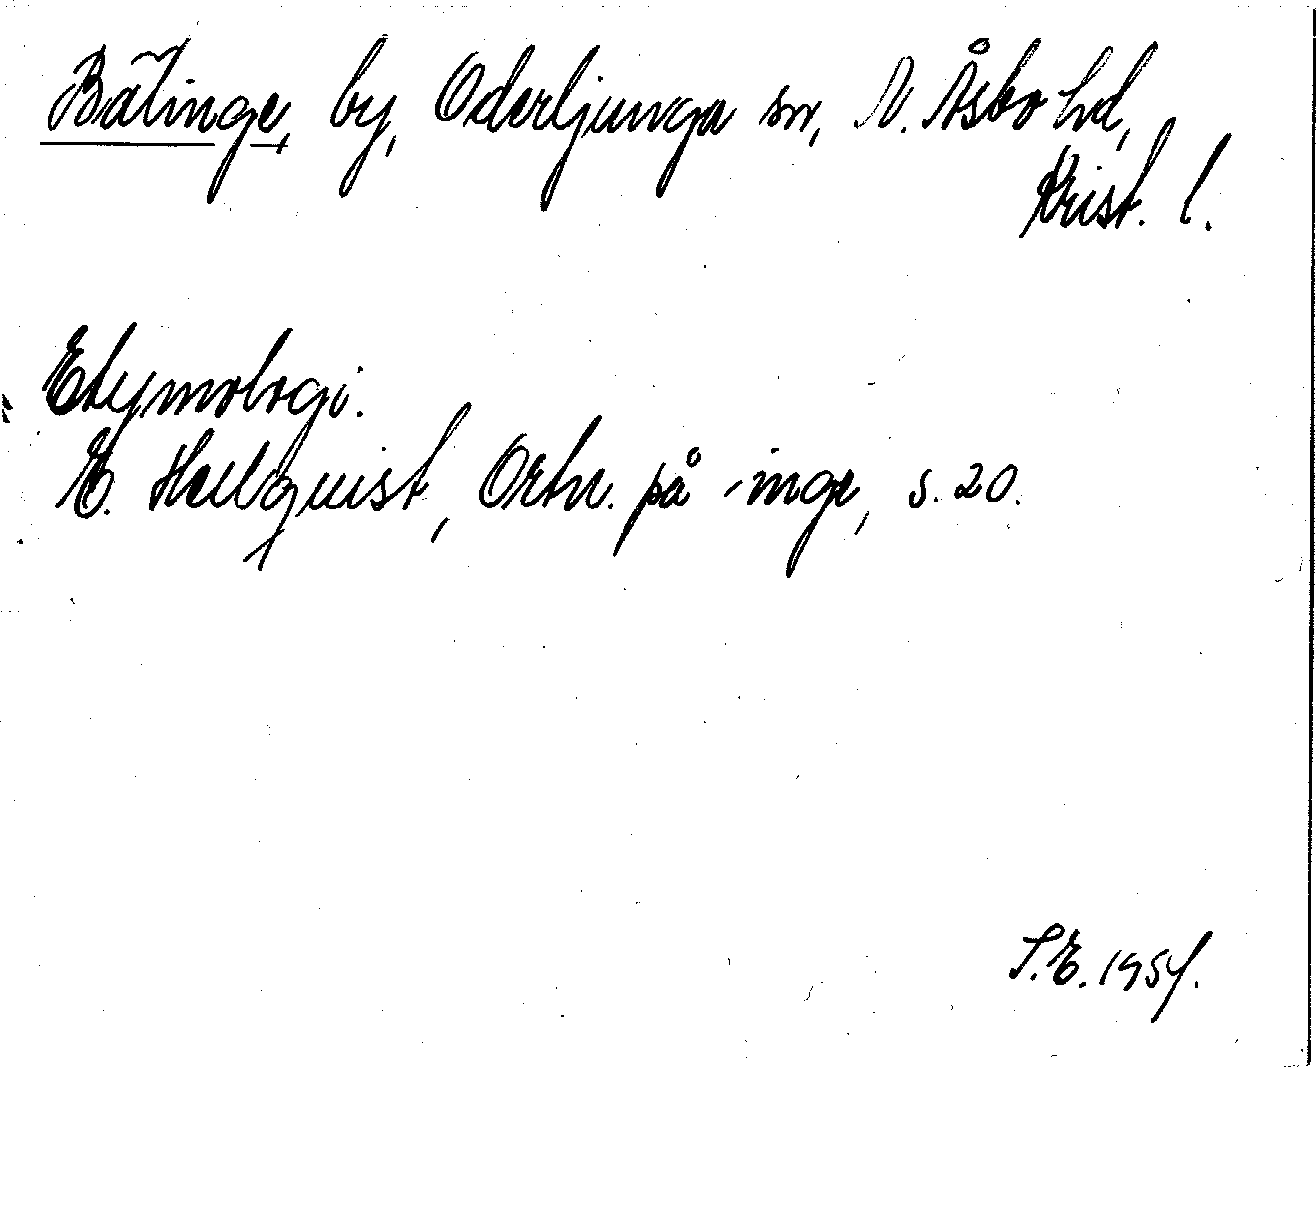 Båtinge, by, Oderljunga sn, N. Åsbo hd,
Krist. l.
Etymologi.
E. Hellquist, Ortn. på -inge, s. 20.
S.E. 1954.